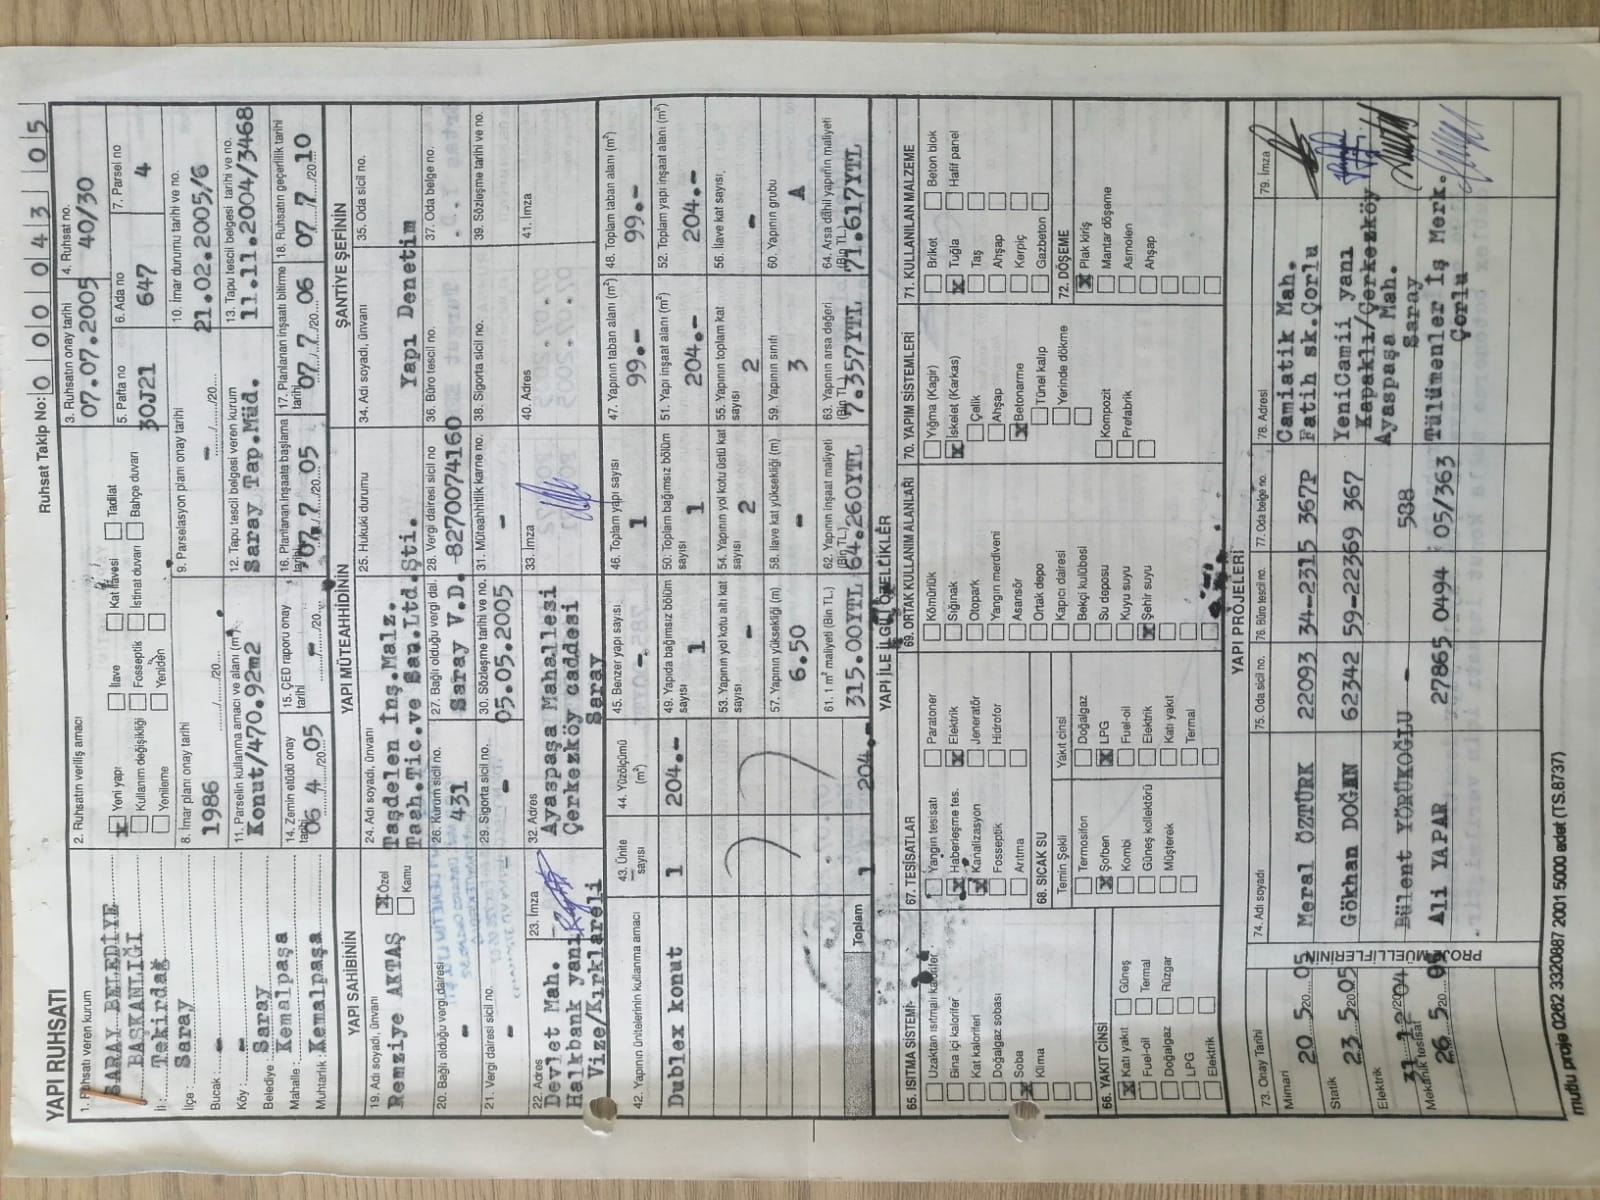 YAPI RUHSATI
Ruhsat Takip No: 0 0 0 0 4 3 0 5
1. Ruhsatı veren kurum
SARAY BELEDİYE
BAŞKANLIĞI
İl : Tekirdağ
İlçe : Saray
Bucak : -
Köy : -
Belediye : Saray
Mahalle : Kemalpaşa
Muhtarlık : Kemalpaşa
2. Ruhsatın veriliş amacı
X Yeni yapı
İlave
Kat ilavesi
Tadilat
Kullanım değişikliği
Fosseptik
İstinat duvarı
Bahçe duvarı
Yenileme
Yeniden
3. Ruhsatın onay tarihi
07.07.2005
4. Ruhsat no.
40/30
5. Pafta no
30J21
6. Ada no
647
7. Parsel no
4
8. İmar planı onay tarihi
1986
......./......./20....
9. Parselasyon planı onay tarihi
-
......./......./20....
10. İmar durumu tarihi ve no.
21.02.2005/6
11. Parselin kullanma amacı ve alanı (m²)
Konut/470.92m2
12. Tapu tescil belgesi veren kurum
Saray Tap.Müd.
13. Tapu tescil belgesi tarihi ve no.
11.11.2004/3468
14. Zemin etüdü onay tarihi
06 4 /20 05
15. ÇED raporu onay tarihi
- /20....
16. Planlanan inşaata başlama tarihi
07 7 /20 05
17. Planlanan inşaatı bitirme tarihi
07 7 /20 06
18. Ruhsatın geçerlilik tarihi
07 7 /20 10
YAPI SAHİBİNİN
19. Adı soyadı, ünvanı
Remziye AKTAŞ
X Özel
Kamu
20. Bağlı olduğu vergi dairesi
-
21. Vergi dairesi sicil no.
-
22. Adres
Devlet Mah.
Halkbank yanı
Vize/Kırklareli
23. İmza
YAPI MÜTEAHHİDİNİN
24. Adı soyadı, ünvanı
Taşdelen İnş.Malz.
Taah.Tic.ve San.Ltd.Şti.
25. Hukuki durumu
26. Kurum sicil no.
431
27. Bağlı olduğu vergi dai.
Saray V.D.
28. Vergi dairesi sicil no
-8270074160
29. Sigorta sicil no.
-
30. Sözleşme tarihi ve no.
05.05.2005
31. Müteahhitlik karne no:
-
32. Adres
Ayaspaşa Mahallesi
Çerkezköy caddesi
Saray
33. İmza
ŞANTİYE ŞEFİNİN
34. Adı soyadı, ünvanı
Yapı Denetim
35. Oda sicil no.
36. Büro tescil no:
37. Oda belge no.
38. Sigorta sicil no.
39. Sözleşme tarihi ve no.
40. Adres
41. İmza
42. Yapının ünitelerinin kullanma amacı
Dublex konut
43. Ünite sayısı
1
44. Yüzölçümü (m²)
204.-
Toplam 1 204.-
45. Benzer yapı sayısı
-
46. Toplam yapı sayısı
1
47. Yapının taban alanı (m²)
99.-
48. Toplam taban alanı (m²)
99.-
49. Yapıda bağımsız bölüm sayısı
1
50. Toplam bağımsız bölüm sayısı
1
51. Yapı inşaat alanı (m²)
204.-
52. Toplam yapı inşaat alanı (m²)
204.-
53. Yapının yol kotu altı kat sayısı
-
54. Yapının yol kotu üstü kat sayısı
2
55. Yapının toplam kat sayısı
2
56. İlave kat sayısı
-
57. Yapının yüksekliği (m)
6.50
58. İlave kat yüksekliği (m)
-
59. Yapının sınıfı
3
60. Yapının grubu
A
61. 1 m² maliyeti (Bin TL.)
315.00YTL
62. Yapının inşaat maliyeti (Bin TL.)
64.260YTL
63. Yapının arsa değeri (Bin TL.)
7.357YTL
64. Arsa dâhil yapının maliyeti (Bin TL.)
71.617YTL
YAPI İLE İLGİLİ ÖZELLİKLER
65. ISITMA SİSTEMİ
Uzaktan ısıtmalı kalorifer
Bina içi kalorifer
Kat kaloriferi
Doğalgaz sobası
X Soba
Klima
66. YAKIT CİNSİ
X Katı yakıt
Güneş
Fuel-oil
Termal
Doğalgaz
Rüzgar
LPG
Elektrik
67. TESİSATLAR
Yangın tesisatı
Paratoner
X Haberleşme tes.
X Elektrik
X Kanalizasyon
Jeneratör
Fosseptik
Hidrofor
Arıtma
68. SICAK SU
Temin Şekli
Yakıt cinsi
Termosifon
Doğalgaz
X Şofben
X LPG
Kombi
Fuel-oil
Güneş kollektörü
Elektrik
Müşterek
Katı yakıt
Termal
69. ORTAK KULLANIM ALANLARI
Kömürlük
Sığınak
Otopark
Yangın merdiveni
Asansör
Ortak depo
Kapıcı dairesi
Bekçi kulübesi
Su deposu
Kuyu suyu
X Şehir suyu
70. YAPIM SİSTEMLERİ
Yığma (Kagir)
X İskelet (Karkas)
Çelik
Ahşap
X Betonarme
Tünel kalıp
Yerinde dökme
Kompozit
Prefabrik
71. KULLANILAN MALZEME
Briket
Beton blok
X Tuğla
Hafif panel
Taş
Ahşap
Kerpiç
Gazbeton
72. DÖŞEME
X Plak kiriş
Mantar döşeme
Asmolen
Ahşap
YAPI PROJELERİ
PROJE MÜELLİFLERİNİN
73. Onay Tarihi
74. Adı soyadı
75. Oda sicil no.
76. Büro tescil no.
77. Oda belge no.
78. Adresi
79. İmza
Mimari 20 5 20 05 Meral ÖZTÜRK 22093 34-2315 367P Camiatik Mah.
Fatih sk.Çorlu
Statik 23 5 20 05 Gökhan DOĞAN 62342 59-22369 367 YeniCamii yanı
Kapaklı/Çerkezköy
Elektrik 31 12 20 04 Bülent YÖRÜKOĞLU - 538 Ayaspaşa Mah.
Saray
Mekanik tesisat 26 5 20 05 Ali YAPAR 27865 0494 05/363 Tülümenler İş Merk.
Çorlu
mutlu proje 0262 3320887 2001 5000 adet (TS.8737)